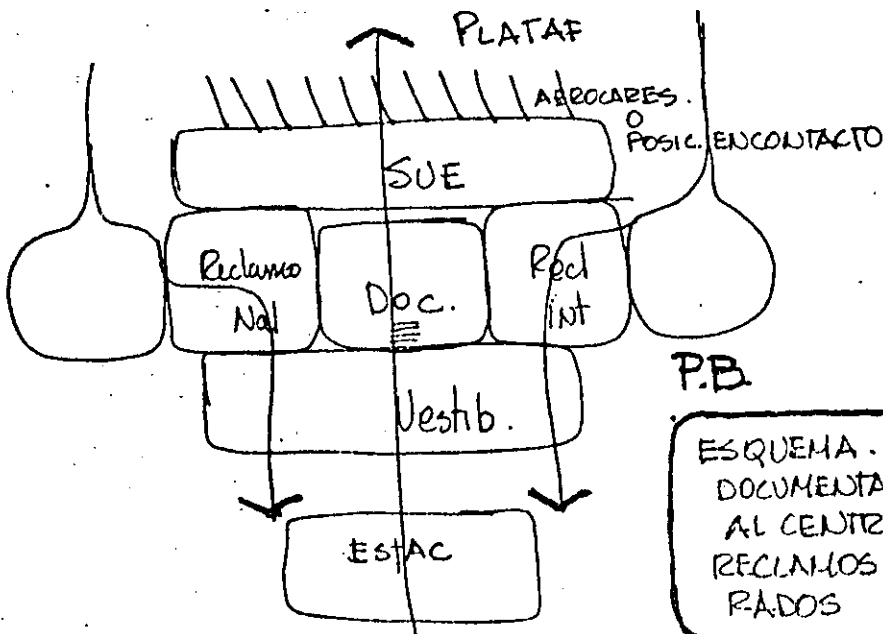 PLATAF
AEROCARES.
O
POSIC. EN CONTACTO
SUE
Reclamo
Nal
Doc.
Recl
int
Vestib.
P.B.
EStAC
ESQUEMA.
DOCUMENTA
AL CENTR
RECLAMOS
RADOS